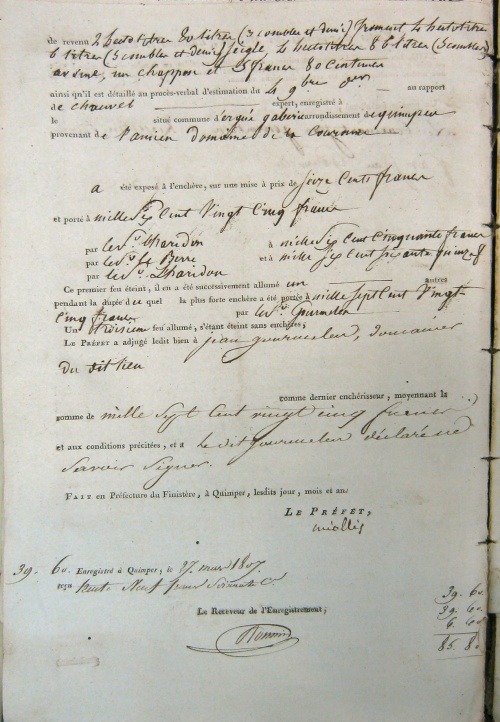 de revenu 2 hectolitres 80 litres (3 combles et demi) froment 4 hectolitres
6 litres (5 combles et demi) seigle, 4 hectolitres 86 litres (5 combles)
avoine, un chappon et 15 francs 80 centimes
ainsi qu'il est détaillé au procès-verbal d'estimation du 4 9bre dr. au rapport
de chauvel expert, enregistré à
le situé commune d'ergué gaberic arrondissement de quimper
provenant de l'ancien domaine de la couronne
a été exposé à l'enchère, sur une mise à prix de seize Cents francs
et porté à mille sept Cent Vingt Cinq francs
par le Sr. à mille sept cent Cinquante francs
par le Sr. Le Berre et à mille sept cent soixante quinze f
par le Sr.
Ce premier feu éteint, il en a successivement allumé un autres
pendant la durée de quel la plus forte enchère a été portée à mille sept Cent Vingt-
Cinq francs par le Sr. Gourmelen
Un troisieme feu allumé, s'étant éteint sans enchères;
Le Préfet a adjugé ledit bien à jean gourmelen, Domanier
du dit lieu
comme dernier enchérisseur, moyennant la
somme de mille sept Cent vingt cinq francs
et aux conditions précitées, et a le dit gourmelen déclaré ne
Savoir Signer.
Fait en Préfecture du Finistère, à Quimper, lesdits jour, mois et an.
Le Préfet,
miollis
39. 60. Enregistré à Quimper, le 27 mars 1807.
reçu trente Neuf francs soixante C.
Le Receveur de l'Enregistrement,
39. 60
39. 60
6. 60
85. 80